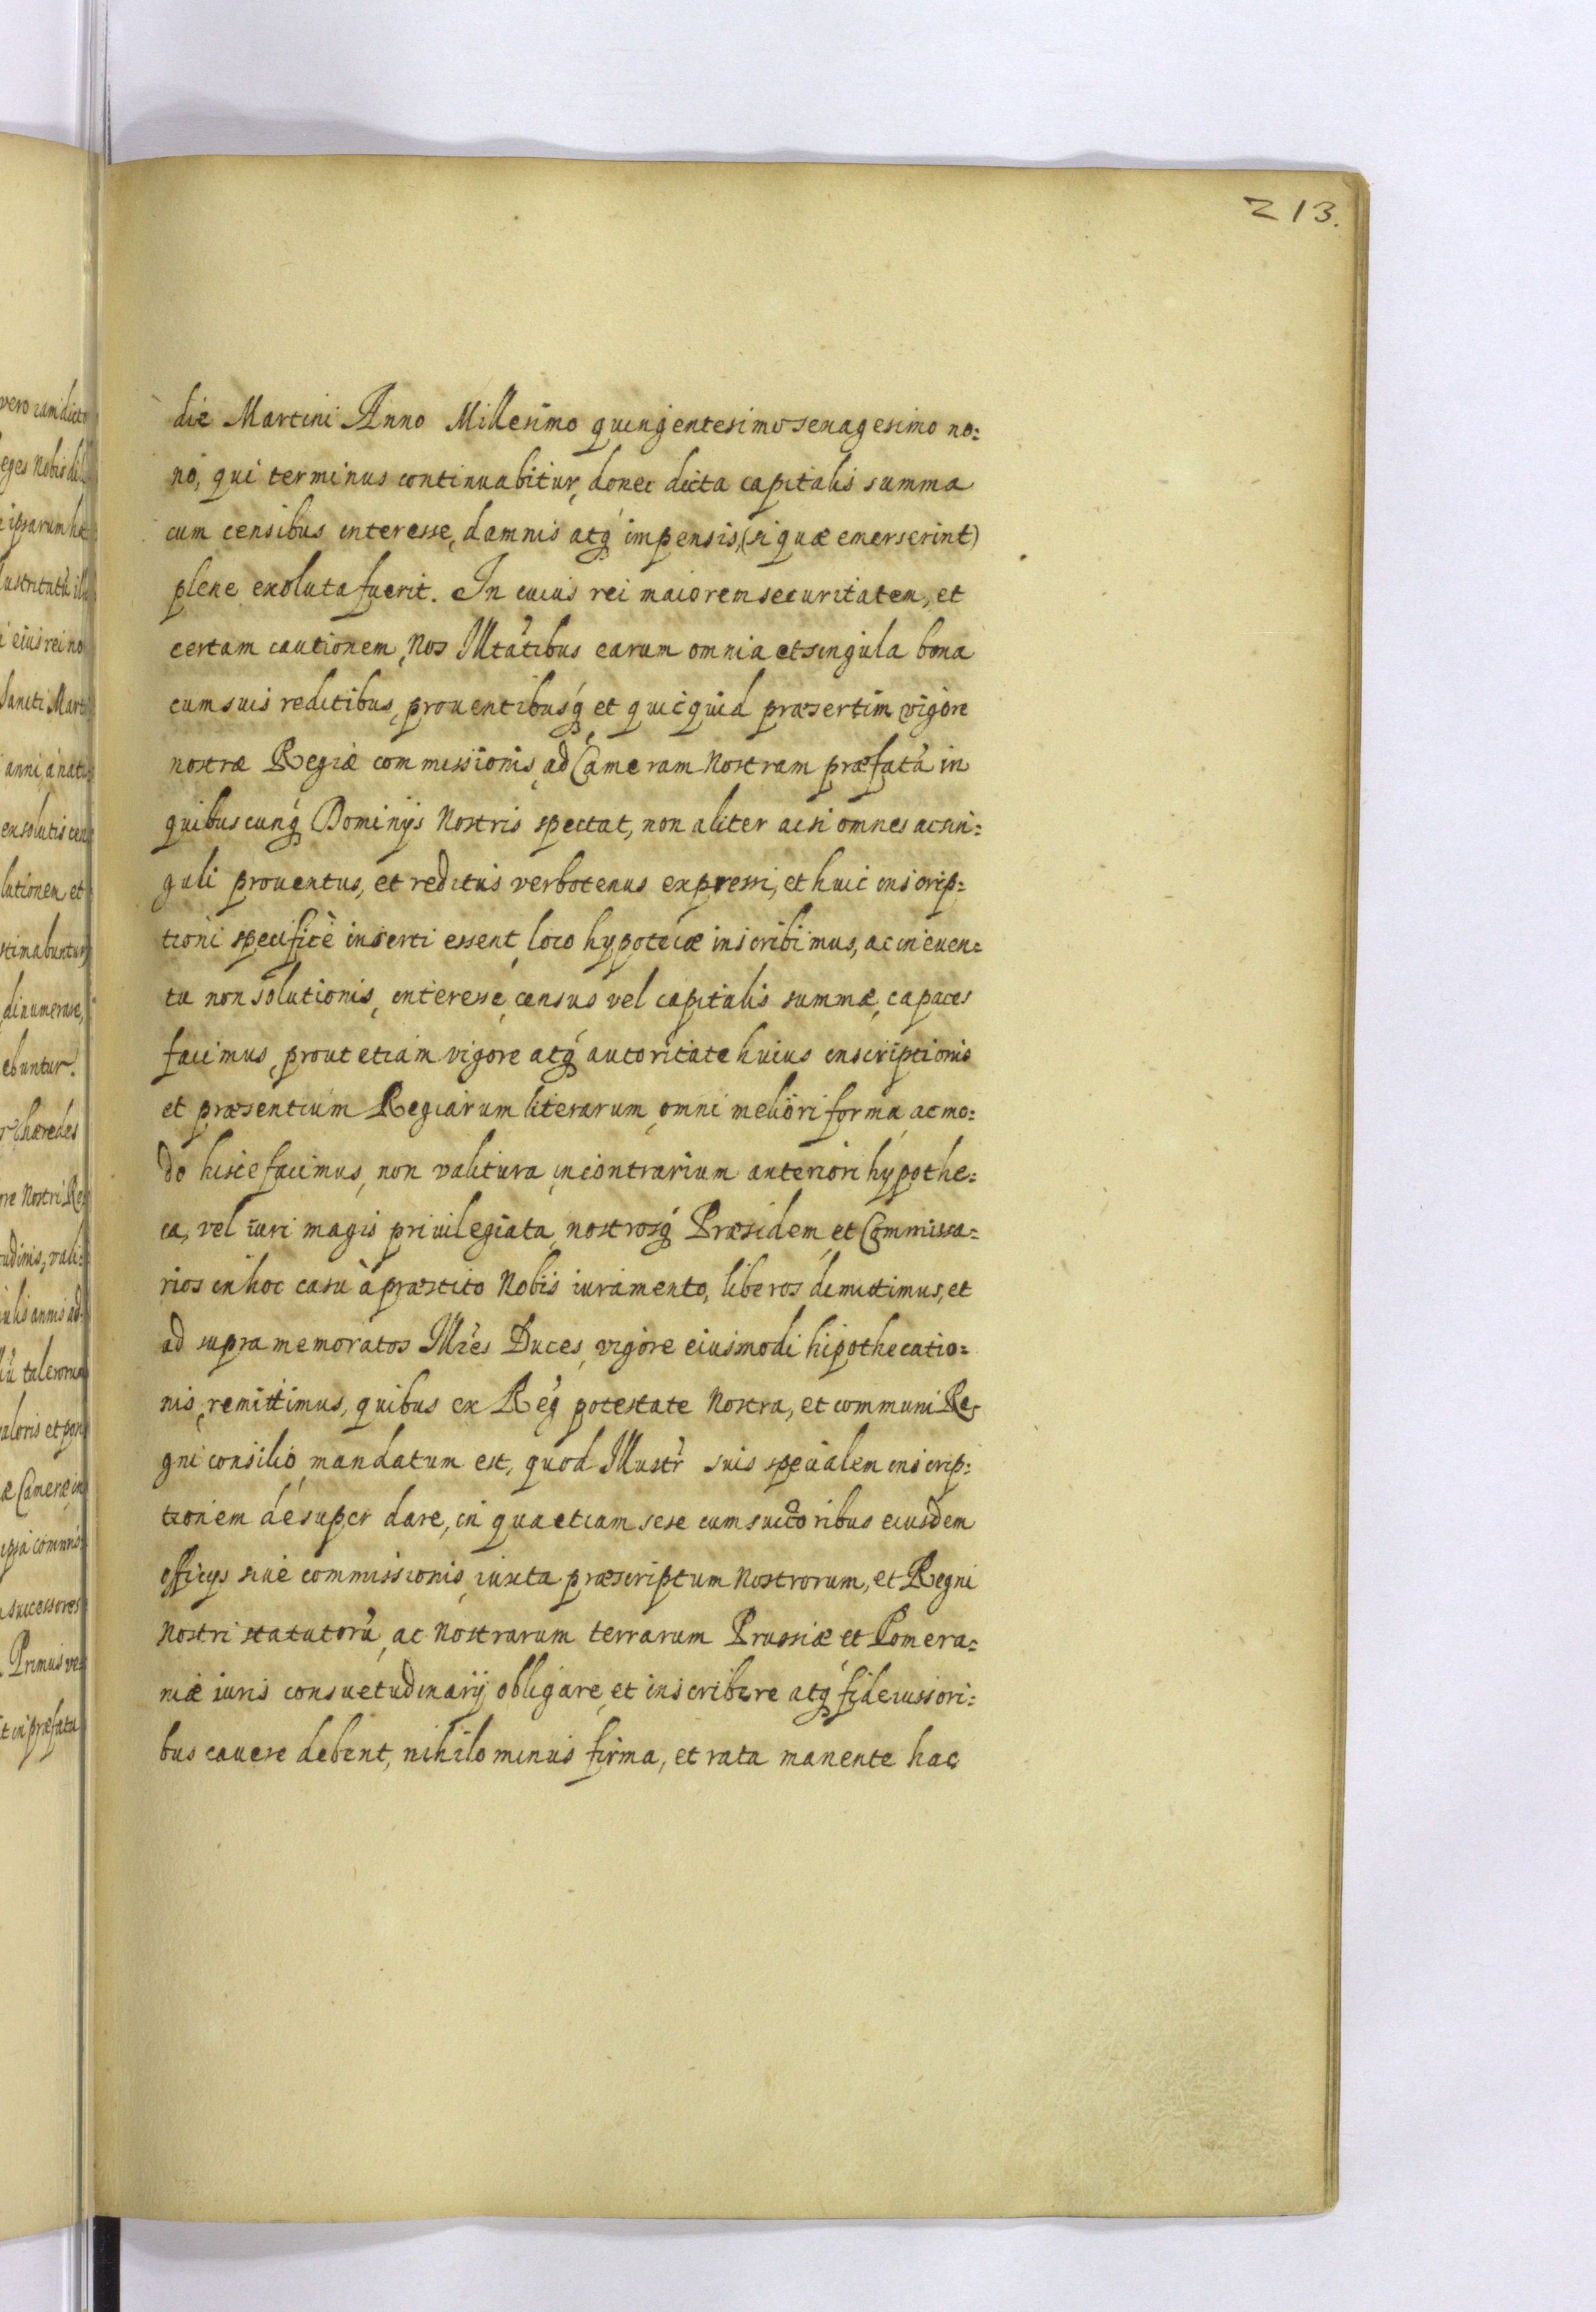 213.
die Martini Anno Millesimo quingentesimo sexagesimo no=
no, qui terminus continuabitur, donec dicta capitalis summa
cum censibus interesse, damnis atq́ impensis, (si quæ emerserint)
plene exoluta fuerit. In cuius rei maiorem securitatem, et
certam cautionem, Nos Illtãtibus earum omnia et singula bona
cum suis reditibus, prouentibusq́, et quicquid præsertim vigore
nostræ Regiæ commissionis, ad Cameram Nostram præfatã in
quibuscunq́ Dominijs Nostris spectat, non aliter ac si omnes ac sin=
guli prouentus, et reditus verbotenus expressi, et huic inscrip=
tioni specificè inserti essent, loco hypotecæ inscribimus, ac in euen=
tu non solutionis, interesse, census vel capitalis summæ, capaces
facimus, prout etiam vigore atq́ autoritate huius inscriptionis
et præsentium Regiarum literarum, omni meliori forma, ac mo=
do hisce facimus, non valitura in contrarium anteriori hypothe=
ca, vel iuri magis priuilegiata, nostrosq́ Præsidem, et Commissa=
rios in hoc casu à præstito Nobis iuramento, liberos dimittimus, et
ad supra memoratos Illr̃es Duces, vigore eiusmodi hipothecatio=
nis, remittimus, quibus ex Reg̃ potestate Nostra, et communi Re=
gni consilio, mandatum est, quod Illustr̃ suis specialem inscrip=
tionem désuper dare, in qua etiam sese cum succõribus eiusdem
officys siue commissionis, iuxta præscriptum Nostrorum, et Regni
Nostri statutorũ, ac Nostrarum terrarum Prussiæ, et Pomera=
niæ iuris consuetudinarij obligare, et inscribere atq́ fideiussori=
bus cauere debent, nihilominus firma, et rata manente hac